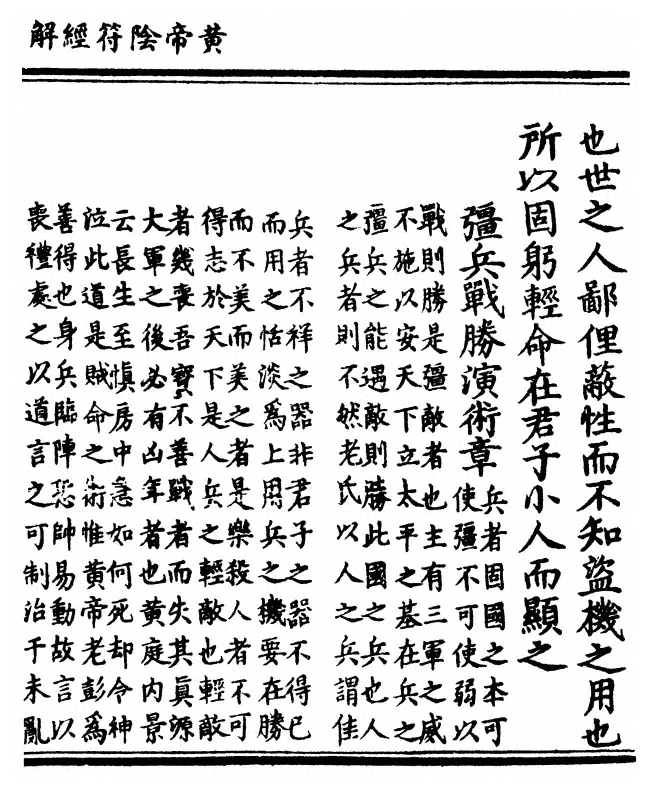 黃帝陰符經解
也世之人鄙俚蔽性而不知盜機之用也
所以固躬輕命在君子小人而顯之
彊兵戰勝演術章
兵者固國之本可
使彊不可使弱以
戰則勝是彊敵者也主有三軍之威
不施以安天下立太平之基在兵之
彊兵之能遇敵則勝此國之兵也人
之兵者則不然老氏以人之兵謂佳
兵者不祥之器非君子之器不得已
而用之恬淡為上用兵之機要在勝
而不美而美之者是樂殺人者不可
得志於天下是人兵之輕敵也輕敵
者幾喪吾寳不善戰者而失其眞源
大軍之後必有凶年者也黃庭内景
云長生至愼房中急如何死却令紳
泣此道是賊命之術惟黃帝老彭為
善得也身兵臨陣恐帥易動故言以
喪禮處之以道言之可制治于未亂